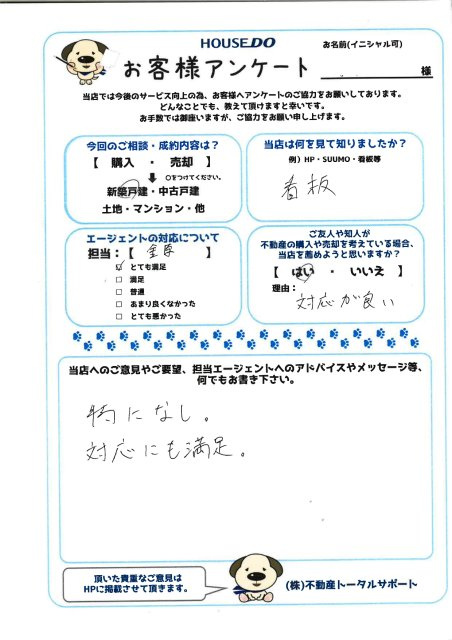 HOUSEDO
お名前(イニシャル可)
お客様アンケート 様
当店では今後のサービス向上の為、お客様へアンケートのご協力をお願いしております。
どんなことでも、教えて頂けますと幸いです。
お手数では御座いますが、ご協力をお願い申し上げます。
今回のご相談・成約内容は?
【 購入 ・ 売却 】
○をつけてください。
新築戸建・中古戸建
土地・マンション・他
当店は何を見て知りましたか?
例）HP・SUUMO・看板等
看板
エージェントの対応について
担当:【 】
☑ とても満足
□ 満足
□ 普通
□ あまり良くなかった
□ とても悪かった
ご友人や知人が
不動産の購入や売却を考えている場合、
当店を薦めようと思いますか?
【 はい ・ いいえ 】
理由:
対応が良い
当店へのご意見やご要望、担当エージェントへのアドバイスやメッセージ等、
何でもお書き下さい。
特になし。
対応にも満足。
頂いた貴重なご意見は
HPに掲載させて頂きます。
(株)不動産トータルサポート